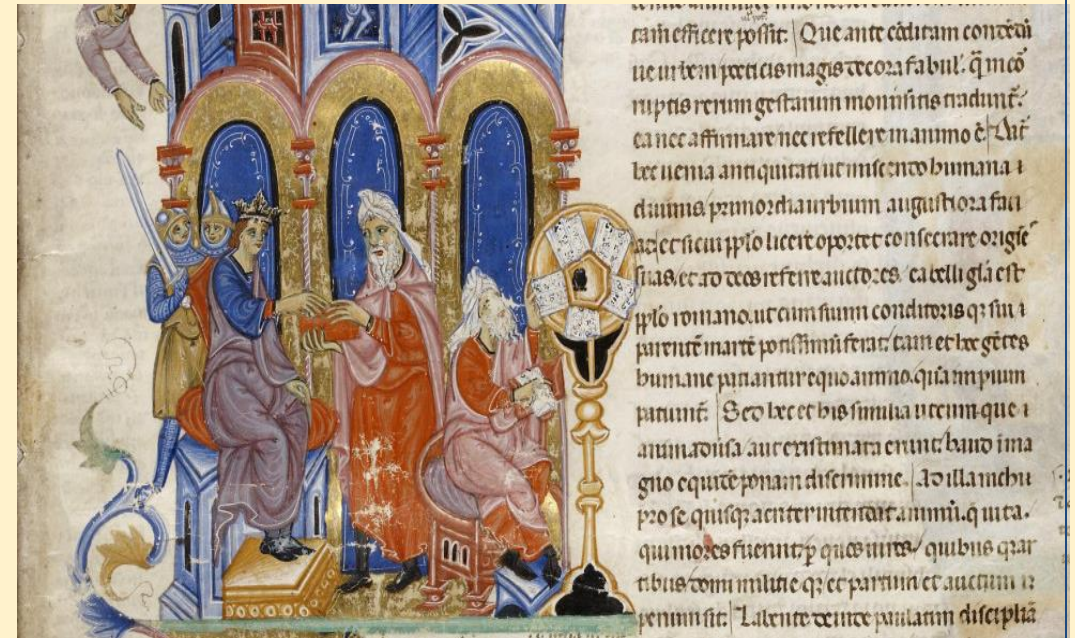 tam efficere possit. Que ante cōditam condēdā
ue urbem poeticis magis decora fabul'. q̄ incō
ruptis rerum gestarum monim̄tis tradunt̄.
ea nec affirmare nec refellere in animo ē. Dat̄
hec uenia antiquitati ut miscendo humana i
diuinis, primordia urbium augustiora faci
at et si cui pplo licere oportet consecrare origīe
suas, et ad deos referre auctores. ea belli gla est
pplo romano. ut cum suum conditoris q; sui i
parentē martē potissimū ferat. tam et hec gētes
humane patiantur equo animo. quā impium
patiunt̄. Sed hec et his similia utcum que i
animadūsa / aut existimata erunt. haud ī ma
gno equidē ponam discrimine. Ad illa michi
pro se quisq; acriter intendat animū. q̄ uita.
qui mores fuerint / p quos uiros / quibus q; ar
tibus / domi militie q; et partum et auctum ī
perium sit. Labente deinde paulatim discipliā